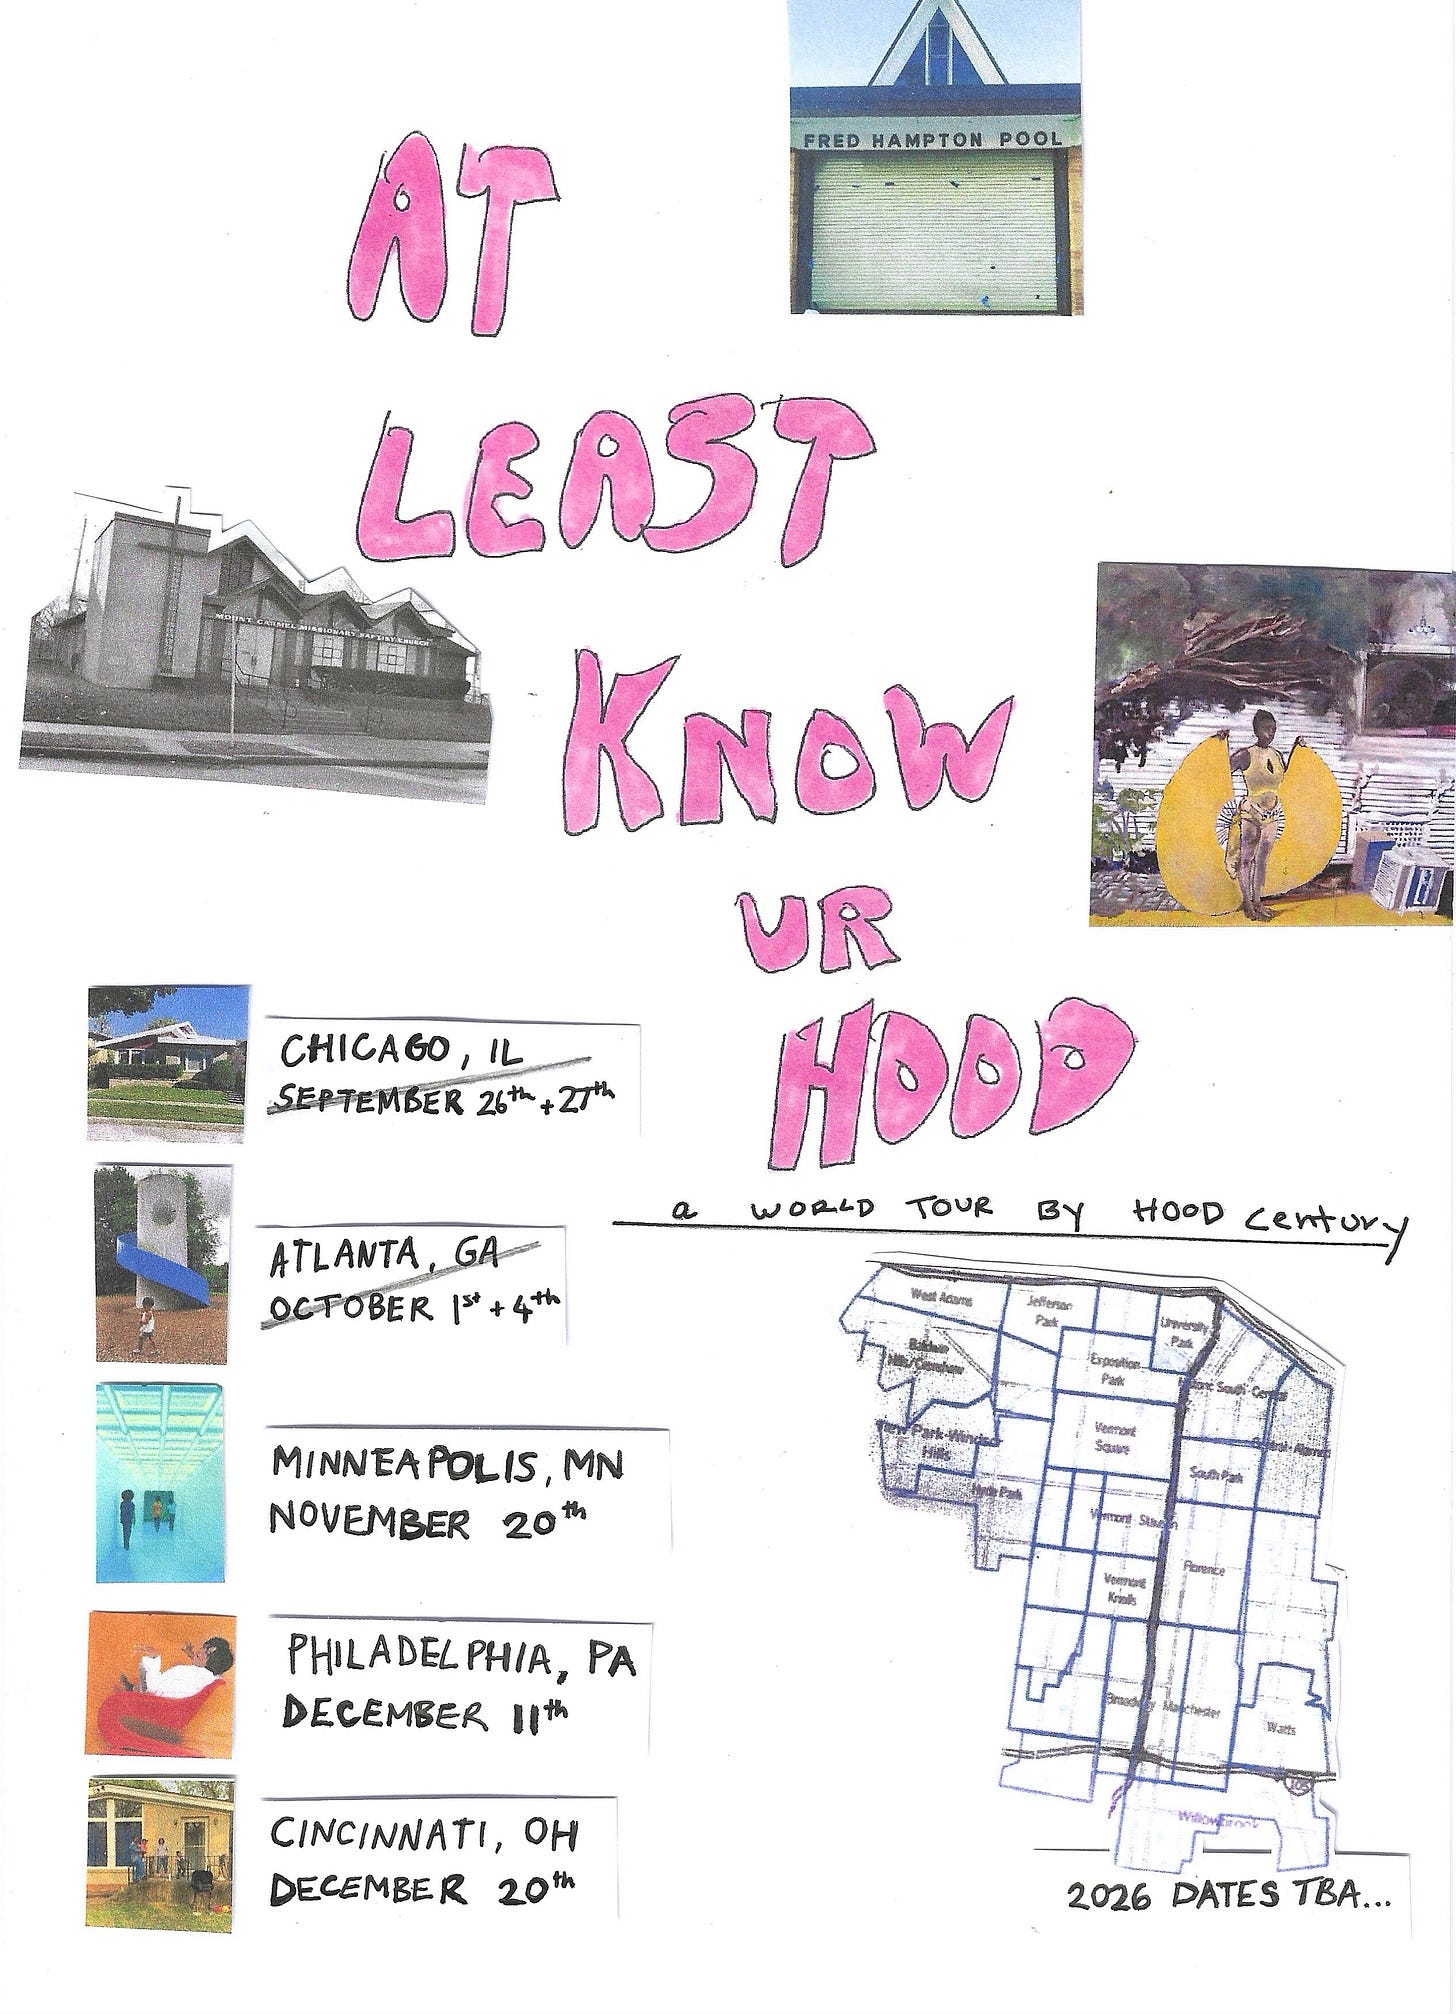 FRED HAMPTON POOL
AT
LEAST
KNOW
UR
HOOD
MOUNT CARMEL MISSIONARY BAPTIST CHURCH
a WORLD TOUR BY HOOD century
CHICAGO, IL
SEPTEMBER 26th + 27th
ATLANTA, GA
OCTOBER 1st + 4th
MINNEAPOLIS, MN
NOVEMBER 20th
PHILADELPHIA, PA
DECEMBER 11th
CINCINNATI, OH
DECEMBER 20th
West Adams
Jefferson
Park
University
Park
Baldwin
Hills/Crenshaw
Exposition
Park
South
Vermont
Square
Park-Windsor
Hills
South Park
Hyde Park
Vermont
Florence
Vermont
Knolls
Broadway Manchester
Watts
105
Willowbrook
2026 DATES TBA...